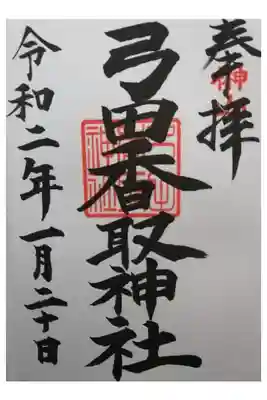 奉拝
弓田香取神社
令和二年一月二十日